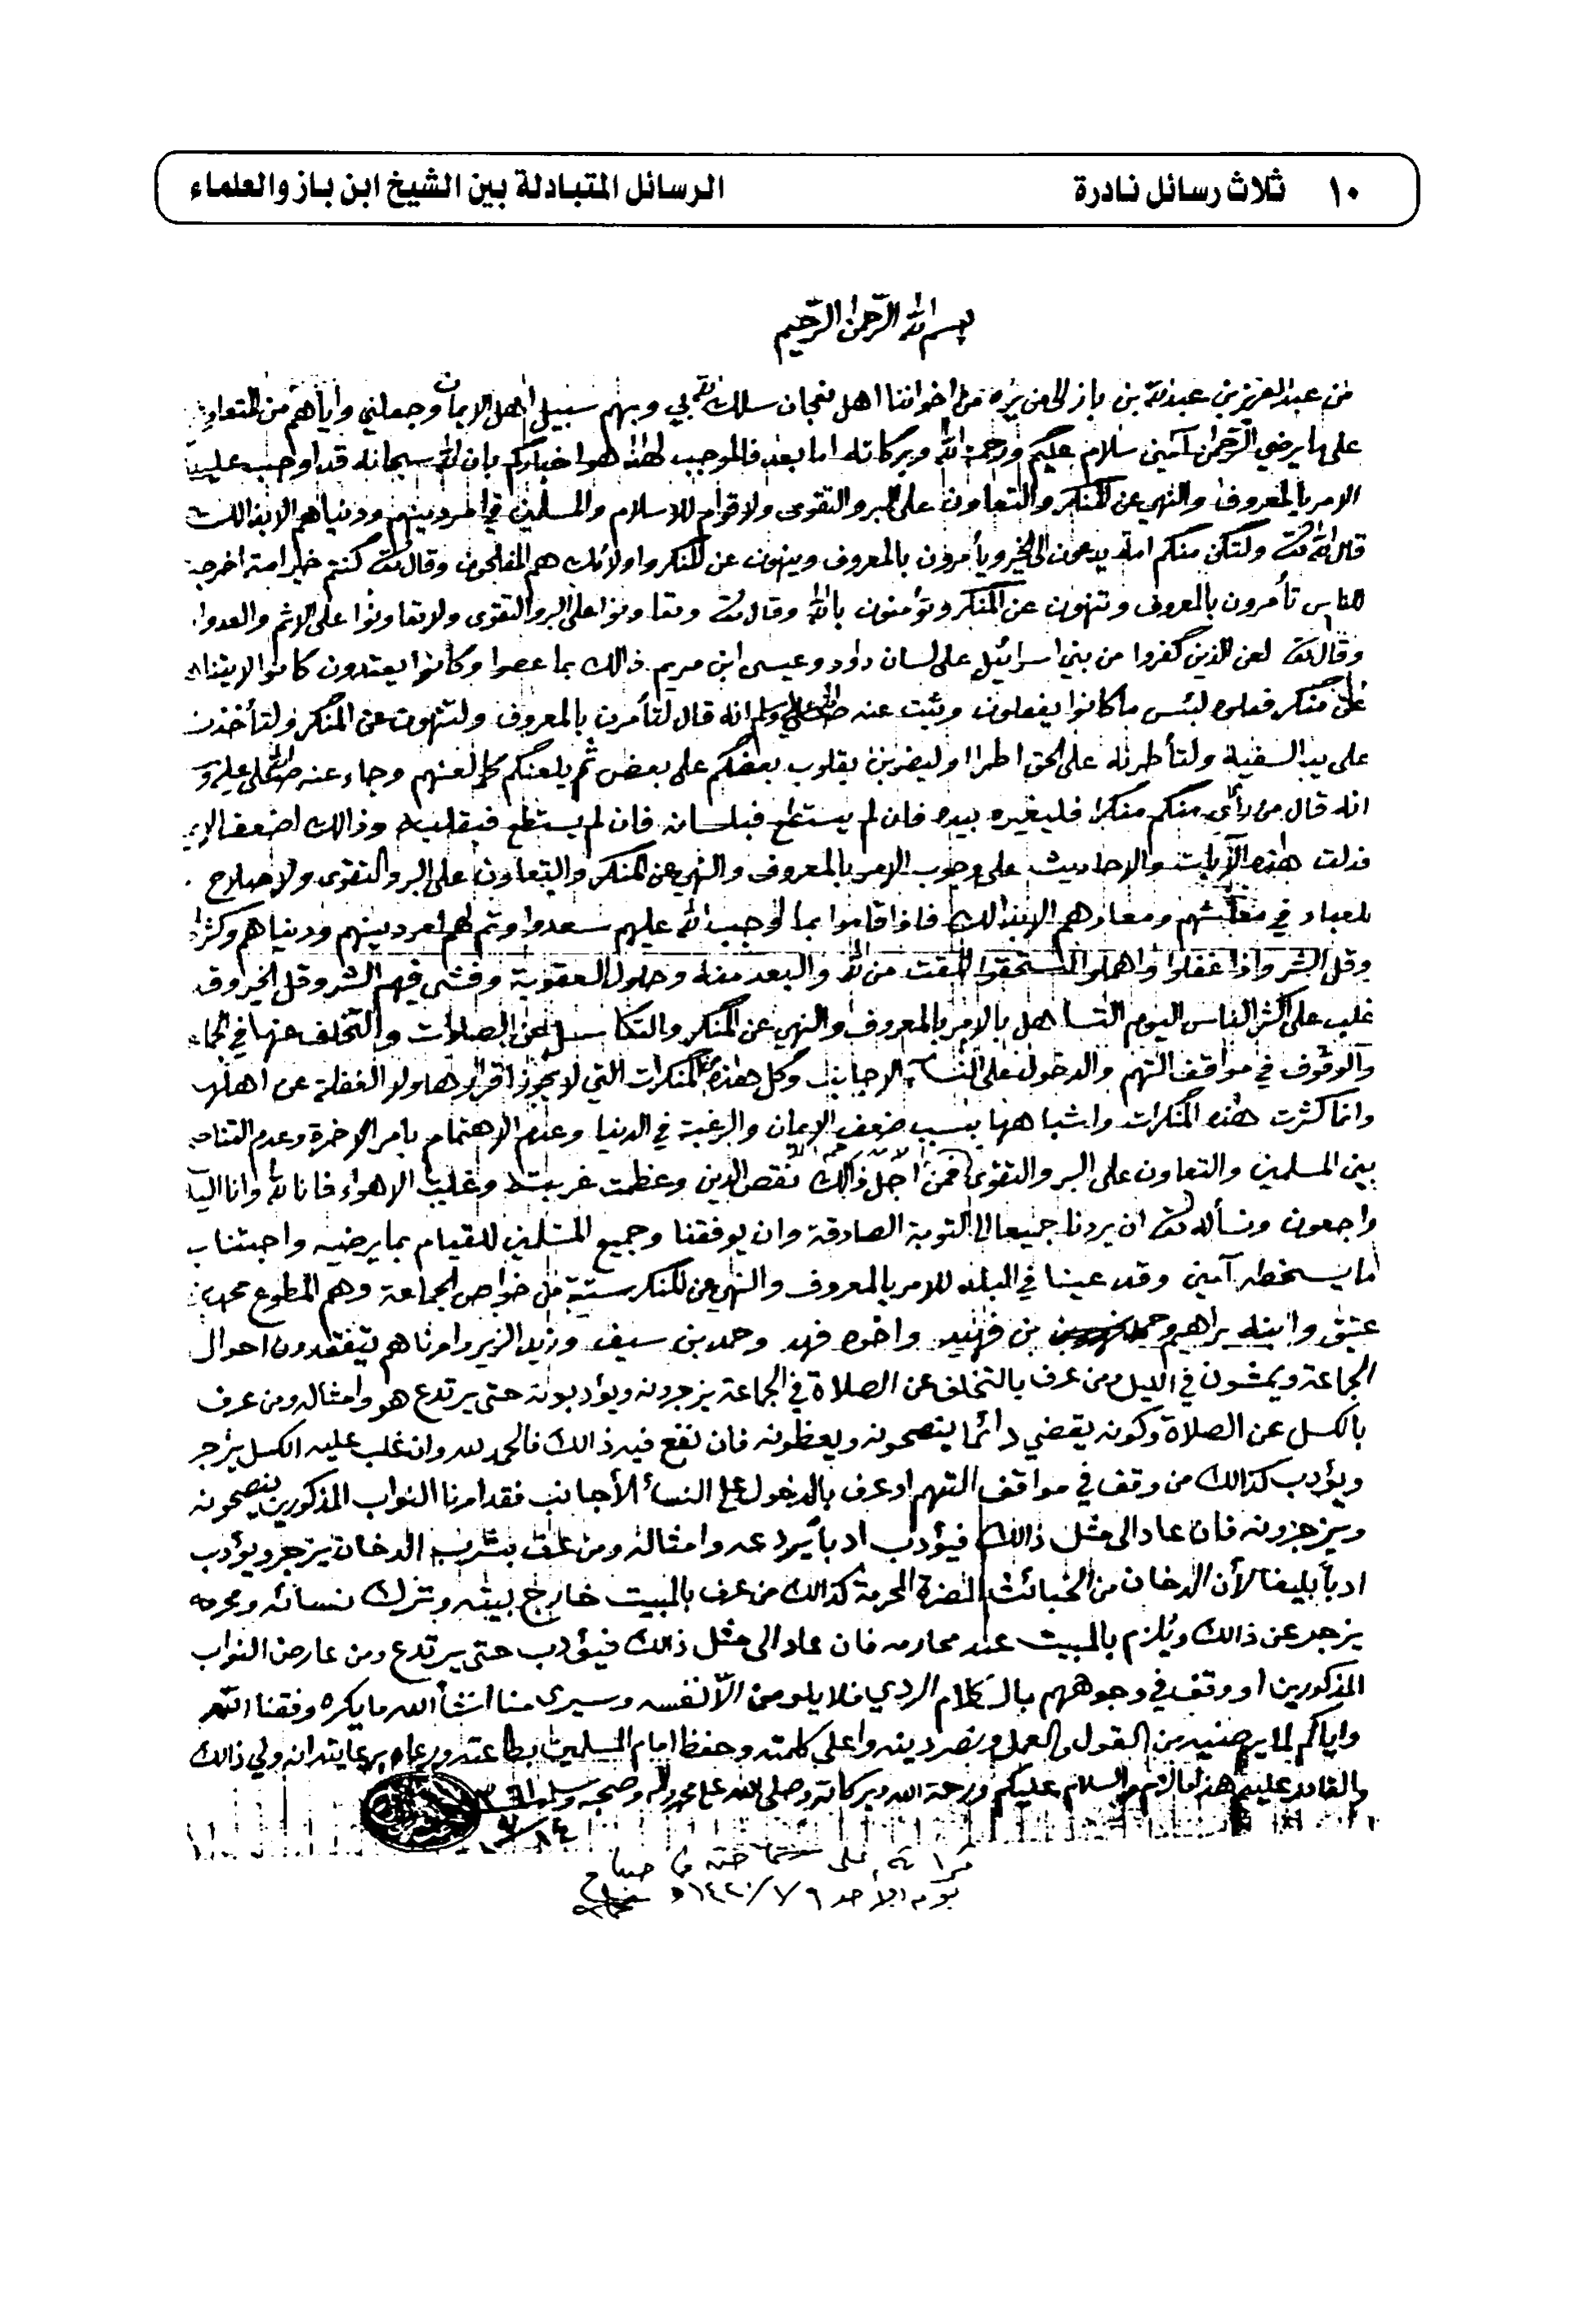 ١٠ ثلاث رسائل نادرة الرسائل المتبادلة بين الشيخ ابن باز والعلماء
بسم الله الرحمن الرحيم
من عبد العزيز بن عبد الله بن باز الى من يره من اخواننا اهل نعجان سلك الله بي وبهم سبيل اهل الايمان وجعلني واياهم من المتعاو
على ما يرضي الرحمن آمين سلام عليكم ورحمة الله وبركاته اما بعد فالموجب لهذا هو اخباركم بان الله سبحانه قد اوجب علينا
الامر بالمعروف والنهي عن المنكر والتعاون على البر والتقوى ولا قوام للاسلام والمسلمين في امر دينهم ودنياهم الا بذالك
قال الله تعالى ولتكن منكم امة يدعون الى الخير ويأمرون بالمعروف وينهون عن المنكر واولائك هم المفلحون وقال تعالى كنتم خير امة اخرجت
للناس تأمرون بالمعروف وتنهون عن المنكر وتؤمنون بالله وقال تعالى وتعاونوا على البر والتقوى ولا تعاونوا على الاثم والعدوا
وقال تعالى لعن الذين كفروا من بني اسرائيل على لسان داود وعيسى ابن مريم ذالك بما عصوا وكانوا يعتدون كانوا لا يتناه
عن منكر فعلوه لبئس ما كانوا يفعلون وثبت عنه صلى الله عليه وسلم انه قال لتأمرن بالمعروف ولتنهون عن المنكر ولتأخذن
على يد السفيه ولتأطرنه على الحق اطرا او ليضربن بقلوب بعضكم على بعض ثم يلعنكم كما لعنهم وجاء عنه صلى الله عليه و
انه قال من رأى منكم منكرا فليغيره بيده فان لم يستطع فبلسانه فان لم يستطع فبقلبه وذالك اضعف الاي
فدلت هذه الآيات والاحاديث على وجوب الامر بالمعروف والنهي عن المنكر والتعاون على البر والتقوى ولا صلاح .
للعباد في معاشهم ومعادهم الا بذالك فاذا قاموا بما اوجب الله عليهم سعدوا وتم لهم امر دينهم ودنياهم وكثر
وقل الشر واذا غفلوا واهملوا استحقوا المقت من الله والبعد منه وحلول العقوبة وفشى فيهم الشر وقل الخير وقد
غلب على اكثر الناس اليوم التساهل بالامر بالمعروف والنهي عن المنكر والتكاسل عن الصلوات والتخلف عنها في الجماء
والوقوف في مواقف التهم والدخول على النساء الاجانب وكل هذه من المنكرات التي لا يجوز اقرارها ولا الغفلة عن اهلها
وانما كثرت هذه المنكرات واشباهها بسبب ضعف الايمان والرغبة في الدنيا وعدم الاهتمام بامر الاخرة وعدم التناصح
بين المسلمين والتعاون على البر والتقوى فمن اجل ذالك نقص الدين وعظمت غربته وغلبت الاهواء فانا لله وانا اليه
راجعون ونسأله تعالى ان يردنا جميعا الى التوبة الصادقة وان يوفقنا وجميع المسلمين للقيام بما يرضيه واجتناب
ما يسخطه آمين وقد عينا في البلد للامر بالمعروف والنهي عن المنكر ستة من خواص الجماعة وهم المطوع محمد بن
عتيق وابنه براهيم وحمد بن فهيد واخوه فهد وحمد بن سيف وزيد الزير وامرناهم يتفقدون احوال
الجماعة ويمشون في الليل ومن عرف بالتخلف عن الصلاة في الجماعة يزجرونه ويؤدبونه حتى يرتدع هو وامثاله ومن عرف
بالكسل عن الصلاة وكونه يقضي دائما ينصحونه ويعظونه فان نفع فيه ذالك فالحمد لله وان غلب عليه الكسل يزجر
ويؤدب كذالك من وقف في مواقف التهم او عرف بالدخول على النسأ الأجانب فقد امرنا النواب المذكورين ينصحونه
ويزجرونه فان عاد الى مثل ذالك فيؤدب ادبا يردعه وامثاله ومن عرف بشرب الدخان يزجر ويؤدب
ادباً بليغا لأن الدخان من الخبائث المضرة المحرمة كذالك من عرف بالمبيت خارج بيته وترك نسائه ومحرمه
يزجر عن ذالك ويلزم بالمبيت عند محارمه فان عاد الى مثل ذالك فيؤدب حتى يرتدع ومن عارض النواب
المذكورين او وقف في وجوههم بالكلام الردي فلا يلومن الا نفسه وسيرى منا انشأ الله ما يكره وفقنا الله
واياكم لما يرضيه من القول والعمل ونصر دينه واعلى كلمته وحفظ امام المسلمين بطاعته ورعاه برعايته انه ولي ذالك
والقادر عليه هذا ما لزم والسلام عليكم ورحمة الله وبركاته وصلى الله على محمد وآله وصحبه وسلم
يوم الأحد ٩/ ٧/ ١٤٢٠هـ